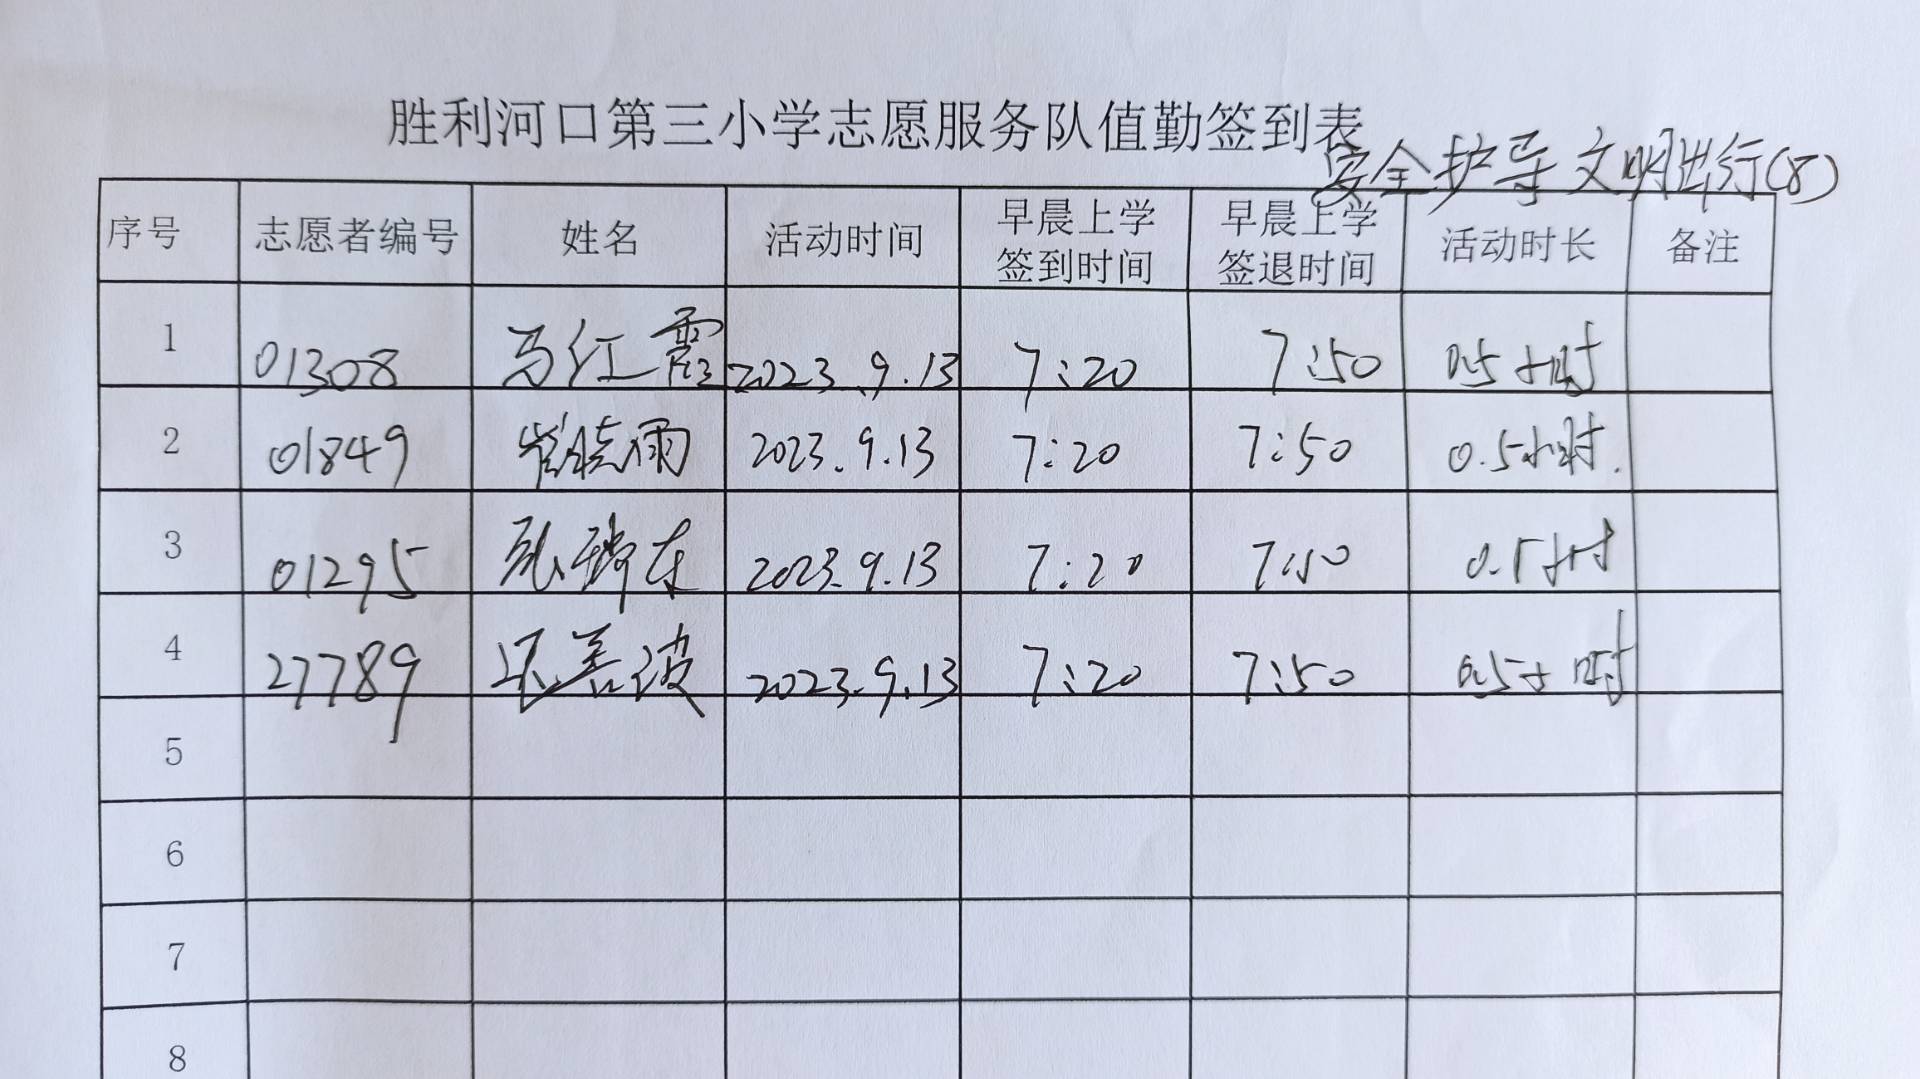 胜利河口第三小学志愿服务队值勤签到表
安全护导 文明进行(8)
序号 志愿者编号 姓名 活动时间 早晨上学签到时间 早晨上学签退时间 活动时长 备注
1 01308 马红霞 2023.9.13 7:20 7:50 0.5小时
2 01849 崔晓雨 2023.9.13 7:20 7:50 0.5小时.
3 01295 2023.9.13 7:20 7:50 0.5小时
4 27789 2023.9.13 7:20 7:50 0.5小时
5
6
7
8